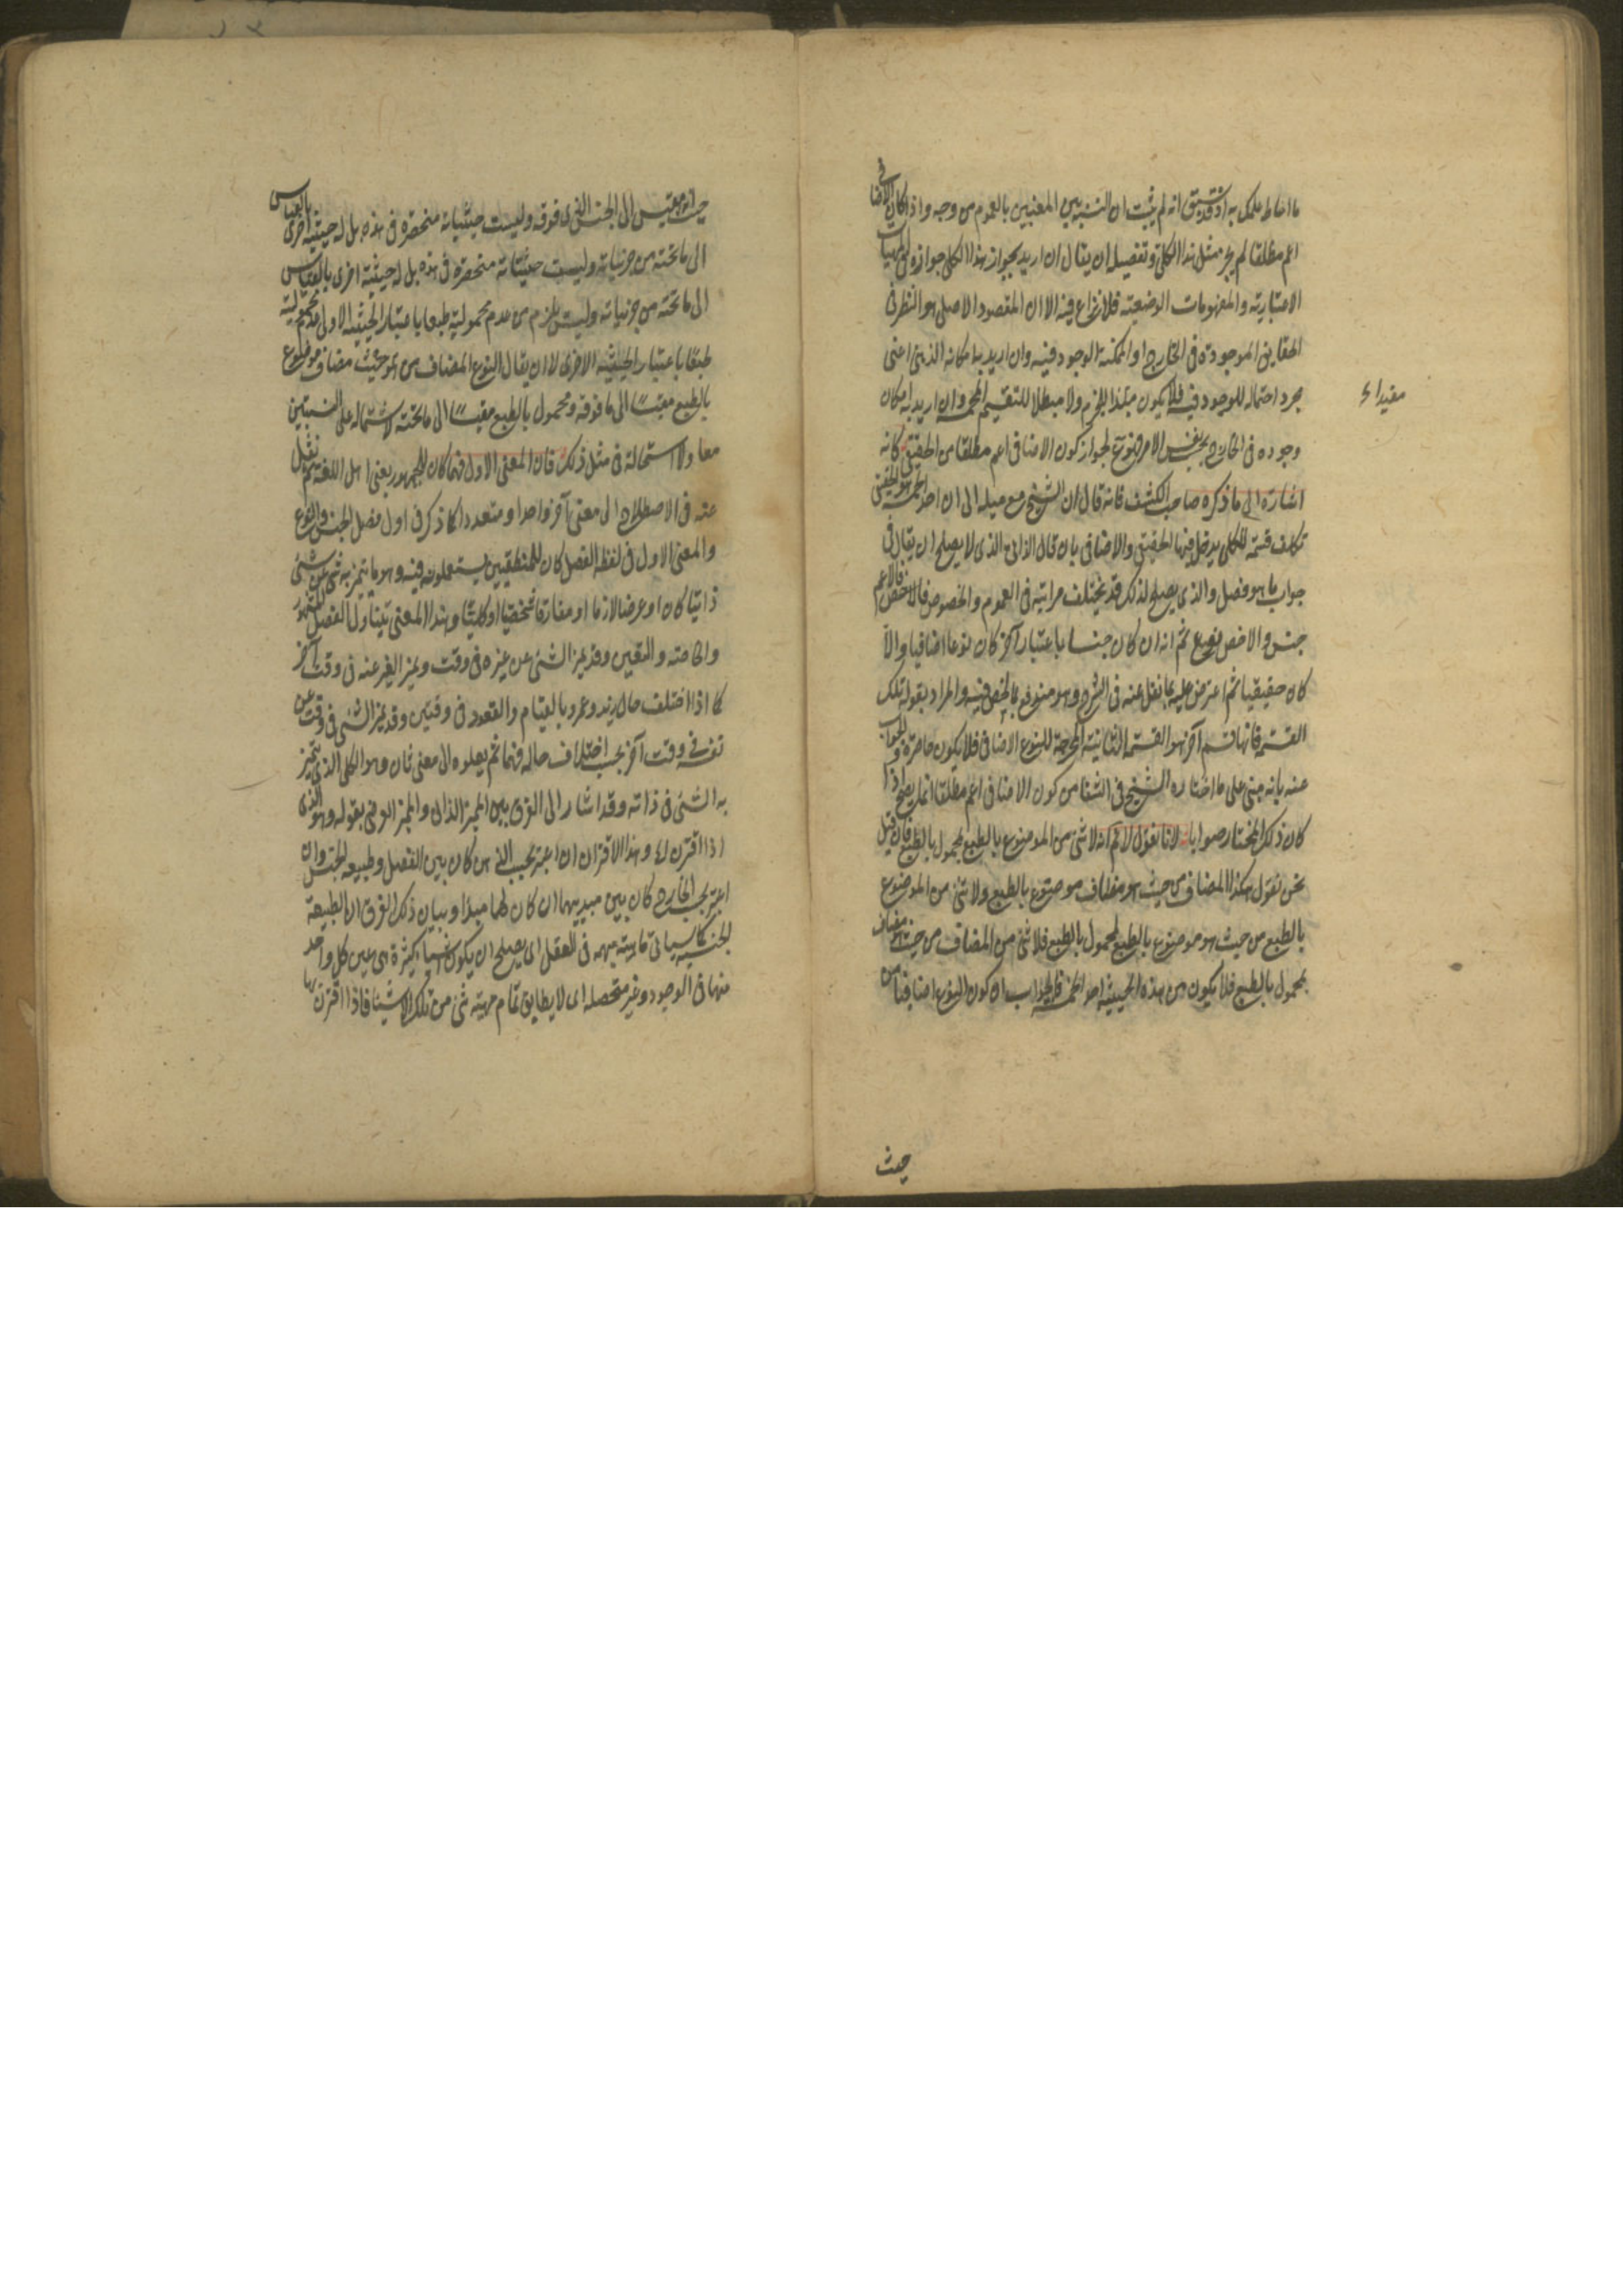 ما احاط علمك به اذ قد سبق انه لم يثبت ان النسبة بين المعنيين بالعموم من وجه واذا كان الاضافي
اعم مطلقا لم يجز مثل هذا الكلي وتفصيله ان يقال ان اريد بجواز هذا الكلي جوازه في المهيات
الاعتبارية والمفهومات الوضعية فلا نزاع فيه الا ان المقصود الاصلي هو النظر في
الحقايق الموجودة في الخارج او الممكنة الوجود فيه وان اريد بها مكانه الذهني اعني
مجرد احتماله للوجود فيه فلا يكون مفيدا للجزم ولا مبطلا للتقسيم المخمس وان اريد به امكان
مفيداء
وجوده في الخارج بحسب نفس الامر فممنوع لجواز كون الاضافي اعم مطلقا من الحقيقي كانه
اشارة الى ما ذكره صاحب الكشف فانه قال ان الشيخ مع ميله الى ان احد الخمسة هو الحقيقي
تكلف قسمة للكلي يدخل فيها الحقيقي والاضافي بان قال الذاتي الذي لا يصلح ان يقال في
جواب ما هو فصل والذي يصلح لذلك قد يختلف مراتبه في العموم والخصوص فالاعم
جنس والاخص نوع ثم انه ان كان جنسا باعتبار آخر كان نوعا اضافيا والا
كان حقيقيا ثم اعترض عليه بما نقل عنه في الشرح وهو منوع بما لخص فيه والمراد بقوله تلك
القسمة فانها قسم آخر هو القسمة الثانية المخرجة للنوع الاضافي فلا يكون حاصرة والجواب
عنه بانه مبني على ما اختاره الشيخ في الشفا من كون الاضافي اعم مطلقا انما يصح اذا
كان ذلك المختار صوابا لانا نقول لا نم انه لا شئ من الموضوع بالطبع بمحمول بالطبع فان قيل
نحن نقول هكذا المضاف من حيث هو مضاف موضوع بالطبع ولا شئ من الموضوع
بالطبع من حيث هو موضوع بالطبع بمحمول بالطبع فلا شئ من المضاف من حيث هو مضاف
بمحمول بالطبع فلا يكون من هذه الحيثية احد الخمسة فالجواب ان كون النوع اضافيا من
حيث
حيث انه مقيس الى الجنس الذي فوقه وليست حيثياته منحصرة في هذه بل له حيثية اخرى بالقياس
الى ما تحته من جزئياته وليست حيثياته منحصرة في هذه بل له حيثية اخرى بالقياس
الى ما تحته من جزئياته وليس يلزم من عدم محموليته طبعا باعتبار الحيثية الاولى عدم محموليته
طبعا باعتبار الحيثية الاخرى لا ان يقال النوع المضاف من حيث مضاف موضوع
بالطبع مقيسا الى ما فوقه ومحمول بالطبع مقيسا الى ما تحته لاشتماله على النسبتين
معا ولا استحالة في مثل ذلك فان المعنى الاول فيما كان للجمهور يعني اهل اللغة ثم نقل
عنه في الاصطلاح الى معنى آخر واحدا ومتعددا كما ذكر في اول فصل الجنس والنوع
والمعنى الاول في لفظ الفصل كان للمنطقيين يستعملونه فيه وهو ما يتميز به شئ عن شئ
ذاتيا كان او عرضا لازما او مفارقا شخصيا او كليا وهذا المعنى يتناول الفصل المشهور
والخاصة والتعين وقد يميز الشئ عن غيره في وقت ويميز الغير عنه في وقت آخر
كما اذا اختلف حال زيد وعمرو بالقيام والقعود في وقتين وقد يميز الشئ في وقت عن
نفسه في وقت آخر بحسب اختلاف حاله فيما ثم نقلوه الى معنى ثان وهو الكلي الذي يتميز
به الشئ في ذاته وقد اشار الى الفرق بين المميز الذاتي والمميز العرضي بقوله وهو الذي
اذا اقترن اه وهذا الاقتران ان اعتبر بحسب الذهن كان بين الفصل وطبيعة الجنس وان
اعتبر بحسب الخارج كان بين مبديهما ان كان لهما مبدأ وبيان ذلك الفرق ان الطبيعة
الجنسية كما سياتي ماهية مبهمة في العقل اي يصلح ان يكون اشياء كثيرة هي عين كل واحد
منها في الوجود وغير متحصلة اي لا يطابق تمام مهية شئ من تلك الاشياء فاذا اقترن بها